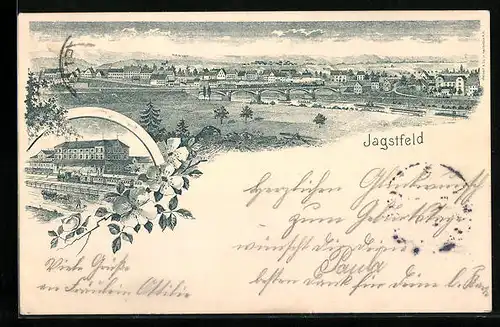 Jagstfeld
Herzlichen Glückwunsch
zum Geburtstage
wünscht dir deine
Paula
besten Dank für deine l.
Viele Grüße
an Fräulein Ottilie